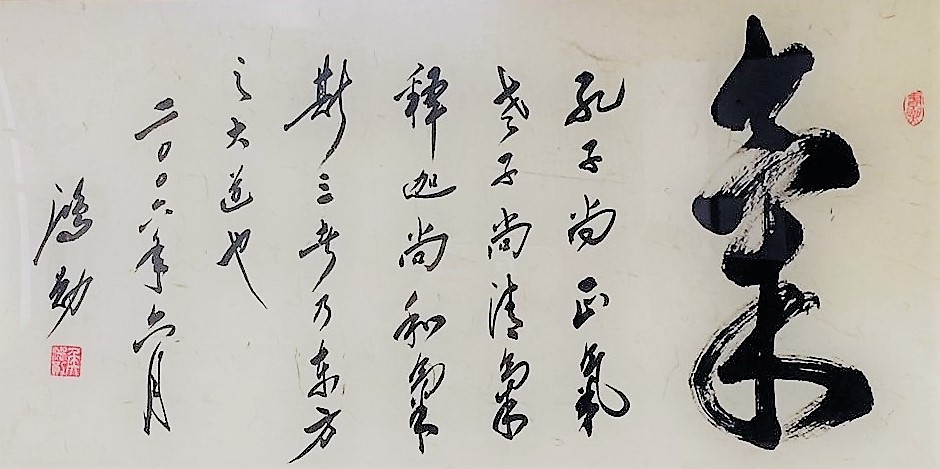 氣
孔子尚正氣
老子尚清氣
釋迦尚和氣
斯三者乃东方
之大道也
二〇〇六年六月
鴻勛